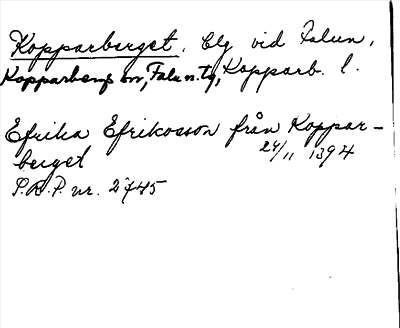 Kopparberget. Elg vid Falun,
Kopparbergs sn, Falu n. tg, Kopparb. l.
Efrika Efrikosson från Koppar-
berget 24/11 1394
S.R.P. nr. 2745